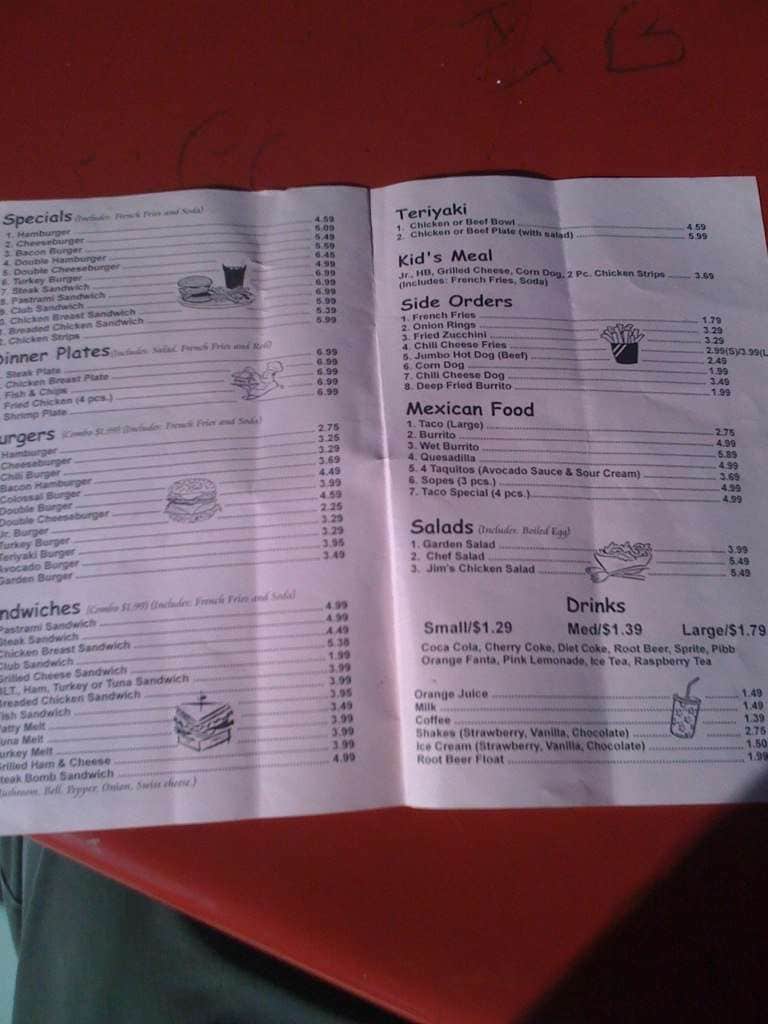 Specials (Includes: French Fries and Soda)
1. Hamburger 4.59
2. Cheeseburger 5.09
3. Bacon Burger 5.49
4. Double Hamburger 5.59
5. Double Cheeseburger 6.45
6. Turkey Burger 4.99
7. Steak Sandwich 6.99
8. Pastrami Sandwich 6.99
9. Club Sandwich 6.99
Chicken Breast Sandwich 5.99
Breaded Chicken Sandwich 5.39
Chicken Strips 5.99
inner Plates (Includes: Salad, French Fries and Roll)
Steak Plate 6.99
Chicken Breast Plate 6.99
Fish & Chips 6.99
Fried Chicken (4 pcs.) 6.99
Shrimp Plate 6.99
urgers (Combo $1.99) (Includes: French Fries and Soda)
Hamburger 2.75
Cheeseburger 3.25
Chili Burger 3.29
Bacon Hamburger 3.69
Colossal Burger 4.49
Double Burger 3.99
Double Cheeseburger 4.59
Jr. Burger 2.25
Turkey Burger 3.29
Teriyaki Burger 3.29
Avocado Burger 3.95
Garden Burger 3.49
ndwiches (Combo $1.99) (Includes: French Fries and Soda)
Pastrami Sandwich 4.99
Steak Sandwich 4.99
Chicken Breast Sandwich 4.49
Club Sandwich 5.38
Grilled Cheese Sandwich 1.99
BLT, Ham, Turkey or Tuna Sandwich 3.99
Breaded Chicken Sandwich 3.99
Fish Sandwich 3.95
Patty Melt 3.49
Tuna Melt 3.99
Turkey Melt 3.99
Grilled Ham & Cheese 3.99
Steak Bomb Sandwich 4.99
Mushroom, Bell, Pepper, Onion, Swiss cheese.)
Teriyaki
1. Chicken or Beef Bowl 4.59
2. Chicken or Beef Plate (with salad) 5.99
Kid's Meal
Jr., HB, Grilled Cheese, Corn Dog, 2 Pc. Chicken Strips 3.69
(Includes: French Fries, Soda)
Side Orders
1. French Fries 1.79
2. Onion Rings 3.29
3. Fried Zucchini 3.29
4. Chili Cheese Fries 2.99(S)/3.99(L
5. Jumbo Hot Dog (Beef) 2.49
6. Corn Dog 1.99
7. Chili Cheese Dog 3.49
8. Deep Fried Burrito 1.99
Mexican Food
1. Taco (Large) 2.75
2. Burrito 4.99
3. Wet Burrito 5.89
4. Quesadilla 4.99
5. 4 Taquitos (Avocado Sauce & Sour Cream) 3.69
6. Sopes (3 pcs.) 4.99
7. Taco Special (4 pcs.) 4.99
Salads (Includes: Boiled Egg)
1. Garden Salad 3.99
2. Chef Salad 5.49
3. Jim's Chicken Salad 5.49
Drinks
Small/$1.29 Med/$1.39 Large/$1.79
Coca Cola, Cherry Coke, Diet Coke, Root Beer, Sprite, Pibb
Orange Fanta, Pink Lemonade, Ice Tea, Raspberry Tea
Orange Juice 1.49
Milk 1.49
Coffee 1.39
Shakes (Strawberry, Vanilla, Chocolate) 2.75
Ice Cream (Strawberry, Vanilla, Chocolate) 1.50
Root Beer Float 1.99